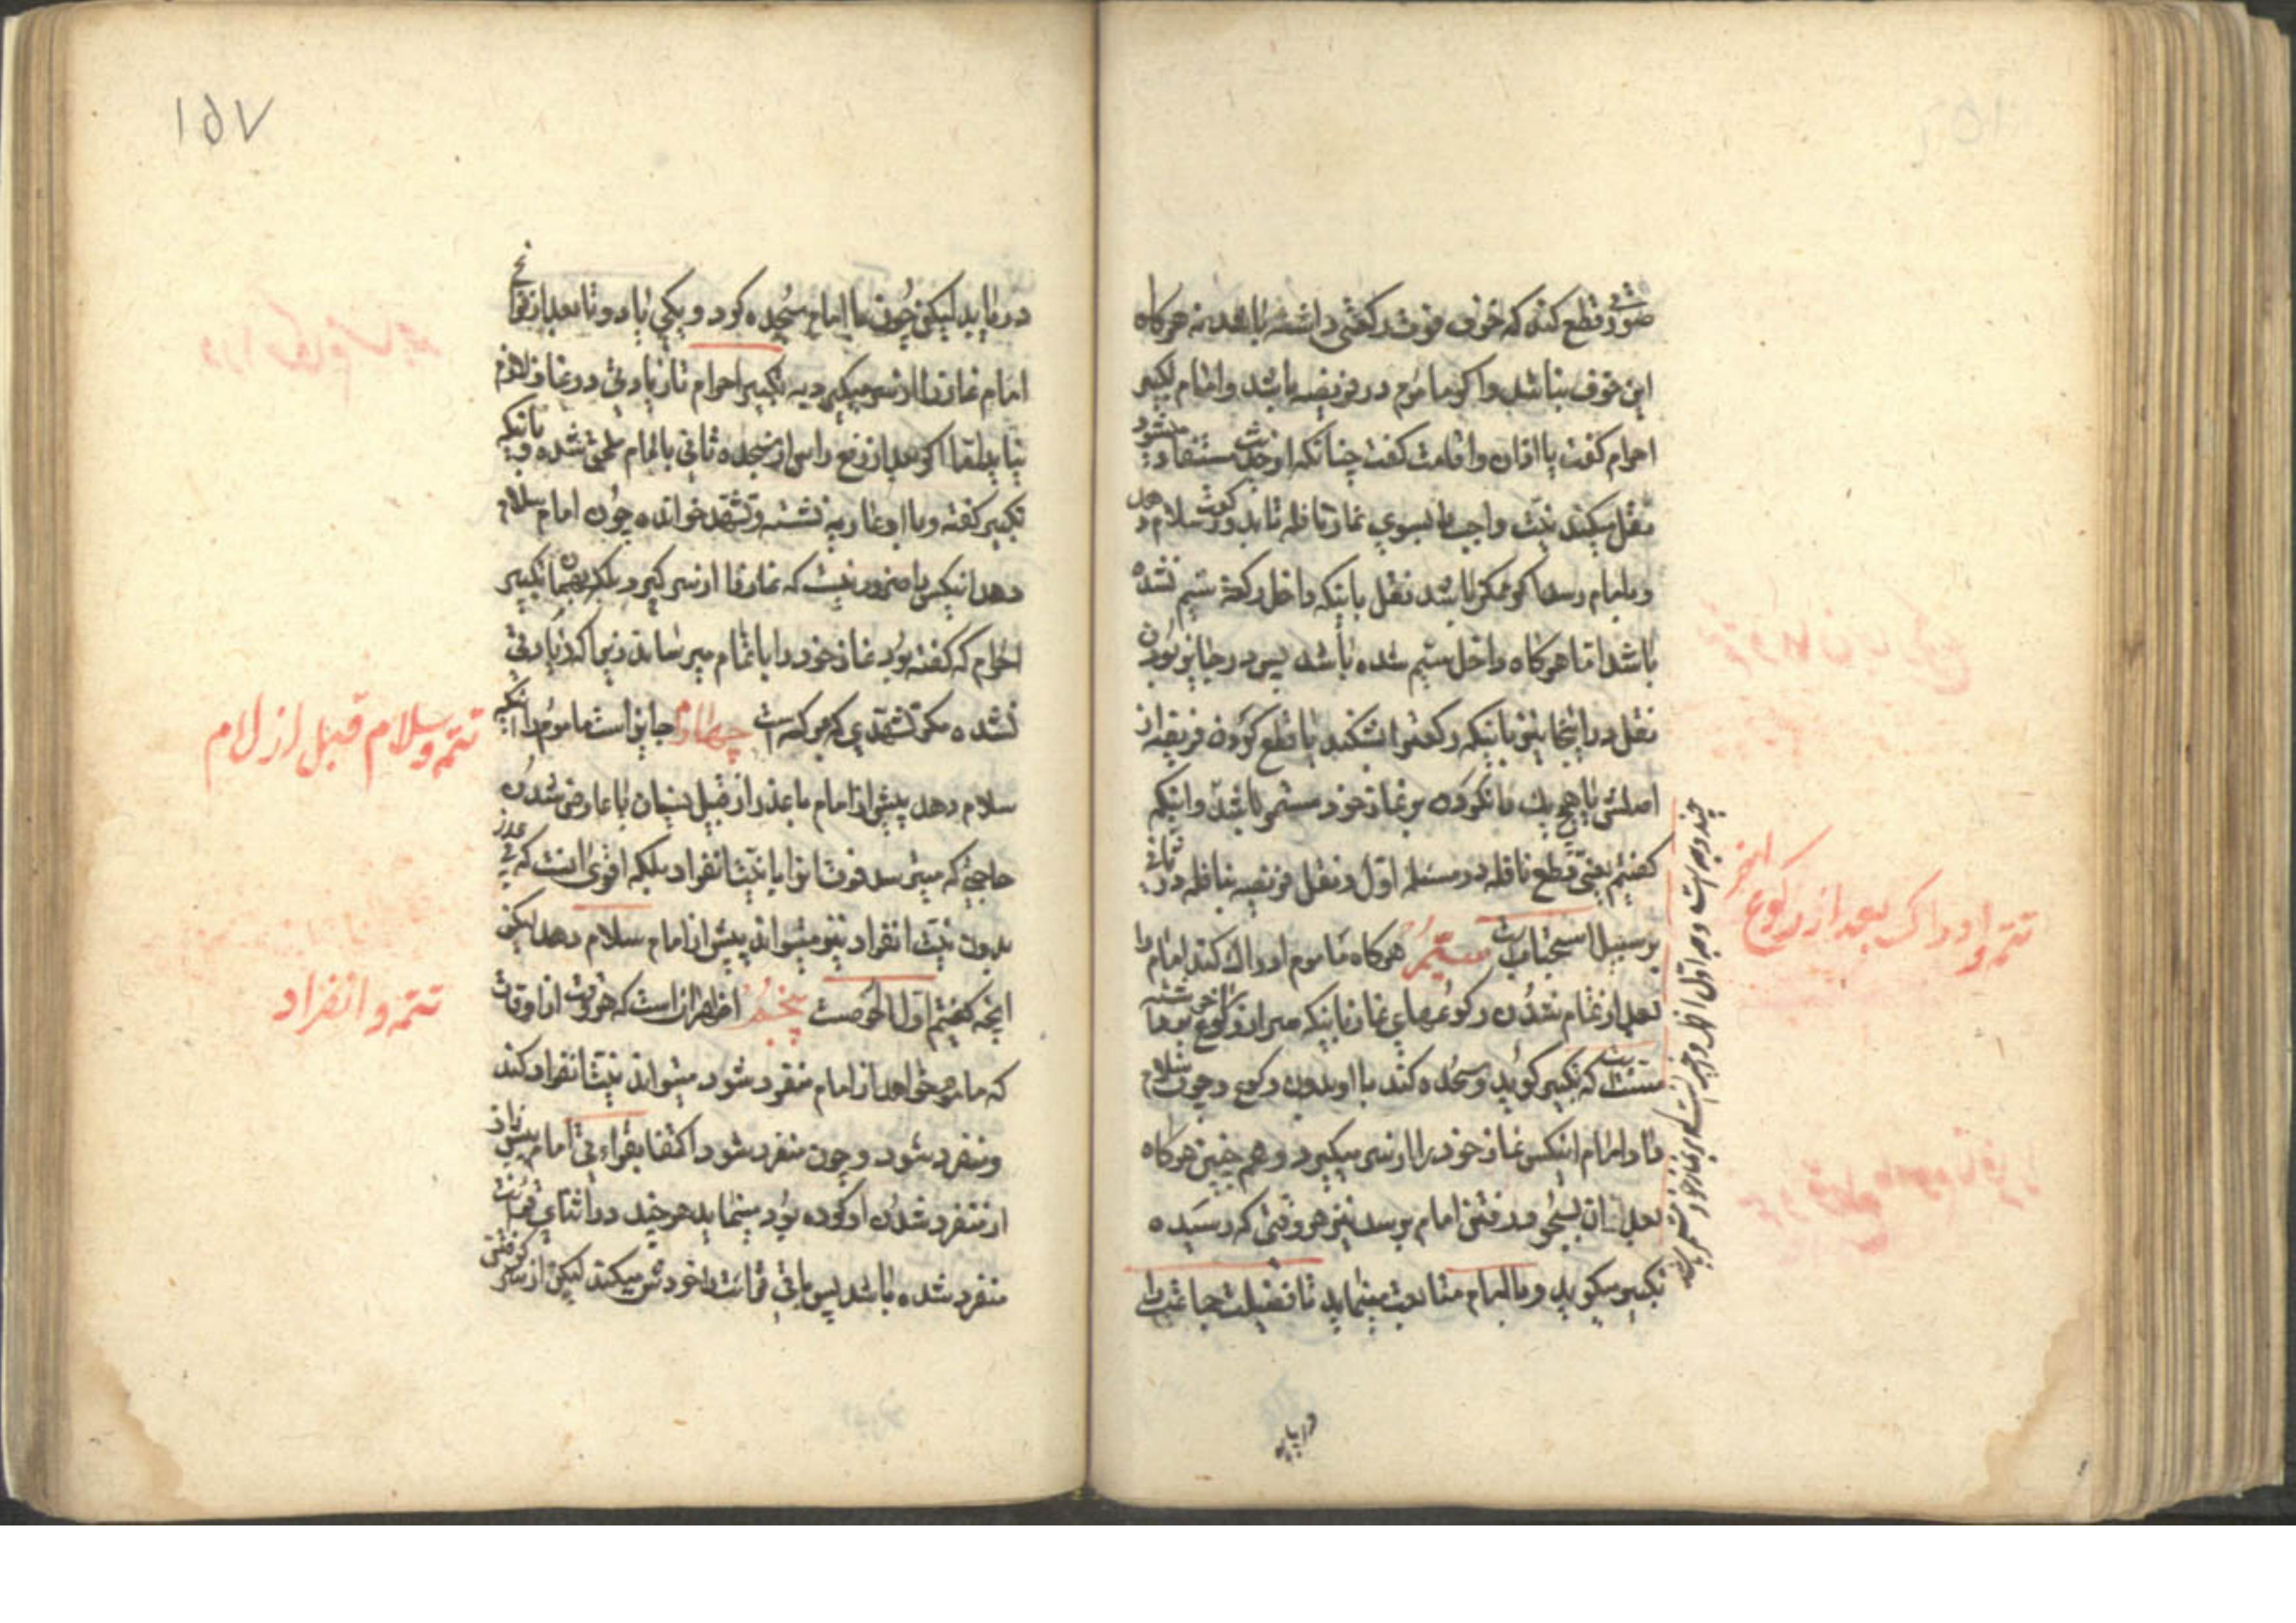 صورت قطع کند که خوف فوت رکعتی داشته باشد نه هرکاه
این خوف نباشد و اکر ماموم در فریضه باشد و امام تکبیر
احرام کفت یا اذان و اقامت کفت چنانکه از حدیث مستفاد میشود
نقل میکند نیت واجب را بسوی نماز نافله تا بدو رکعت سلام دهد
و بامام رسد اکر ممکن باشد نقل باینکه داخل رکعة سیم نشده
باشد اما هرکاه داخل سیم شده باشد پس در جایز بودن
نقل در اینجا نیز باینکه رکعت را بشکند یا قطع کردن فریضه از
اصلش یا هیچ یک را نکردن بر نماز خود مستمر باشد و اینکه
کفتیم یعنی قطع نافله در مسئله اول و نقل فریضه بنافله در ثانی
بر سبیل استحباب است سیّم هرکاه ماموم ادراک کند امام را
بعد از تمام شدن رکوعهای نماز باینکه سر از رکوع آخر برداشته
سنت است که تکبیر کوید و سجده کند با او بدون رکوع و چون سلام
داد امام اینکس نماز خود را از سر میکیرد و هم چنین هرکاه
بعد از ان بسجود رفتن امام برسد نیز هر وقتی که رسیده
تکبیر میکوید و با امام متابعت مینماید تا فضیلت جماعت را
چند وجه است وجه اول
تتمه و ادراک بعد از رکوع اخر
دریابد
۱۵۷
دریابد لیکن چون با امام سجده کرد و یکی یا دو تا بعد از فراغ
امام نماز را از سر میکیرد به تکبیر احرام تا زیادتی در نماز لازم
نیاید اما اکر بعد از رفع راس از سجده ثانی بامام ملحق شده و نیّت
تکبیر کفته و با او نشسته و تشهد خوانده چون امام سلام
دهد اینکس را ضرور نیست که نماز را از سر کیرد بلکه بهمان تکبیر
احرام که کفته بود نماز خود را باتمام میرساند زیرا که زیادتی
نشده مکر تشهدی که برکت است چهارم جایز است ماموم را اینکه
سلام دهد پیش از امام با عذر از قبیل نسیان یا عارض شدن
حاجتی که میترسد فوت انرا یا نیت انفراد بلکه اقوی انست که بی عذر
بدون نیت انفراد نیز میتواند پیش از امام سلام دهد لیکن
انچه کفتیم اولا احوط است پنجم اظهر انست که هر وقت از اوقات
که ماموم خواهد از امام منفرد شود میتواند نیت انفراد کند
و منفرد شود و چون منفرد شود اکتفا بقراءتی امام پیش از
از منفرد شدن او کرده بود مینماید هرچند در اثنای قرائت
منفرد شده باشد پس باقی قرائت را خودش میکند لیکن از سر کرفتن
تتمه و سلام قبل از امام
تتمه و انفراد